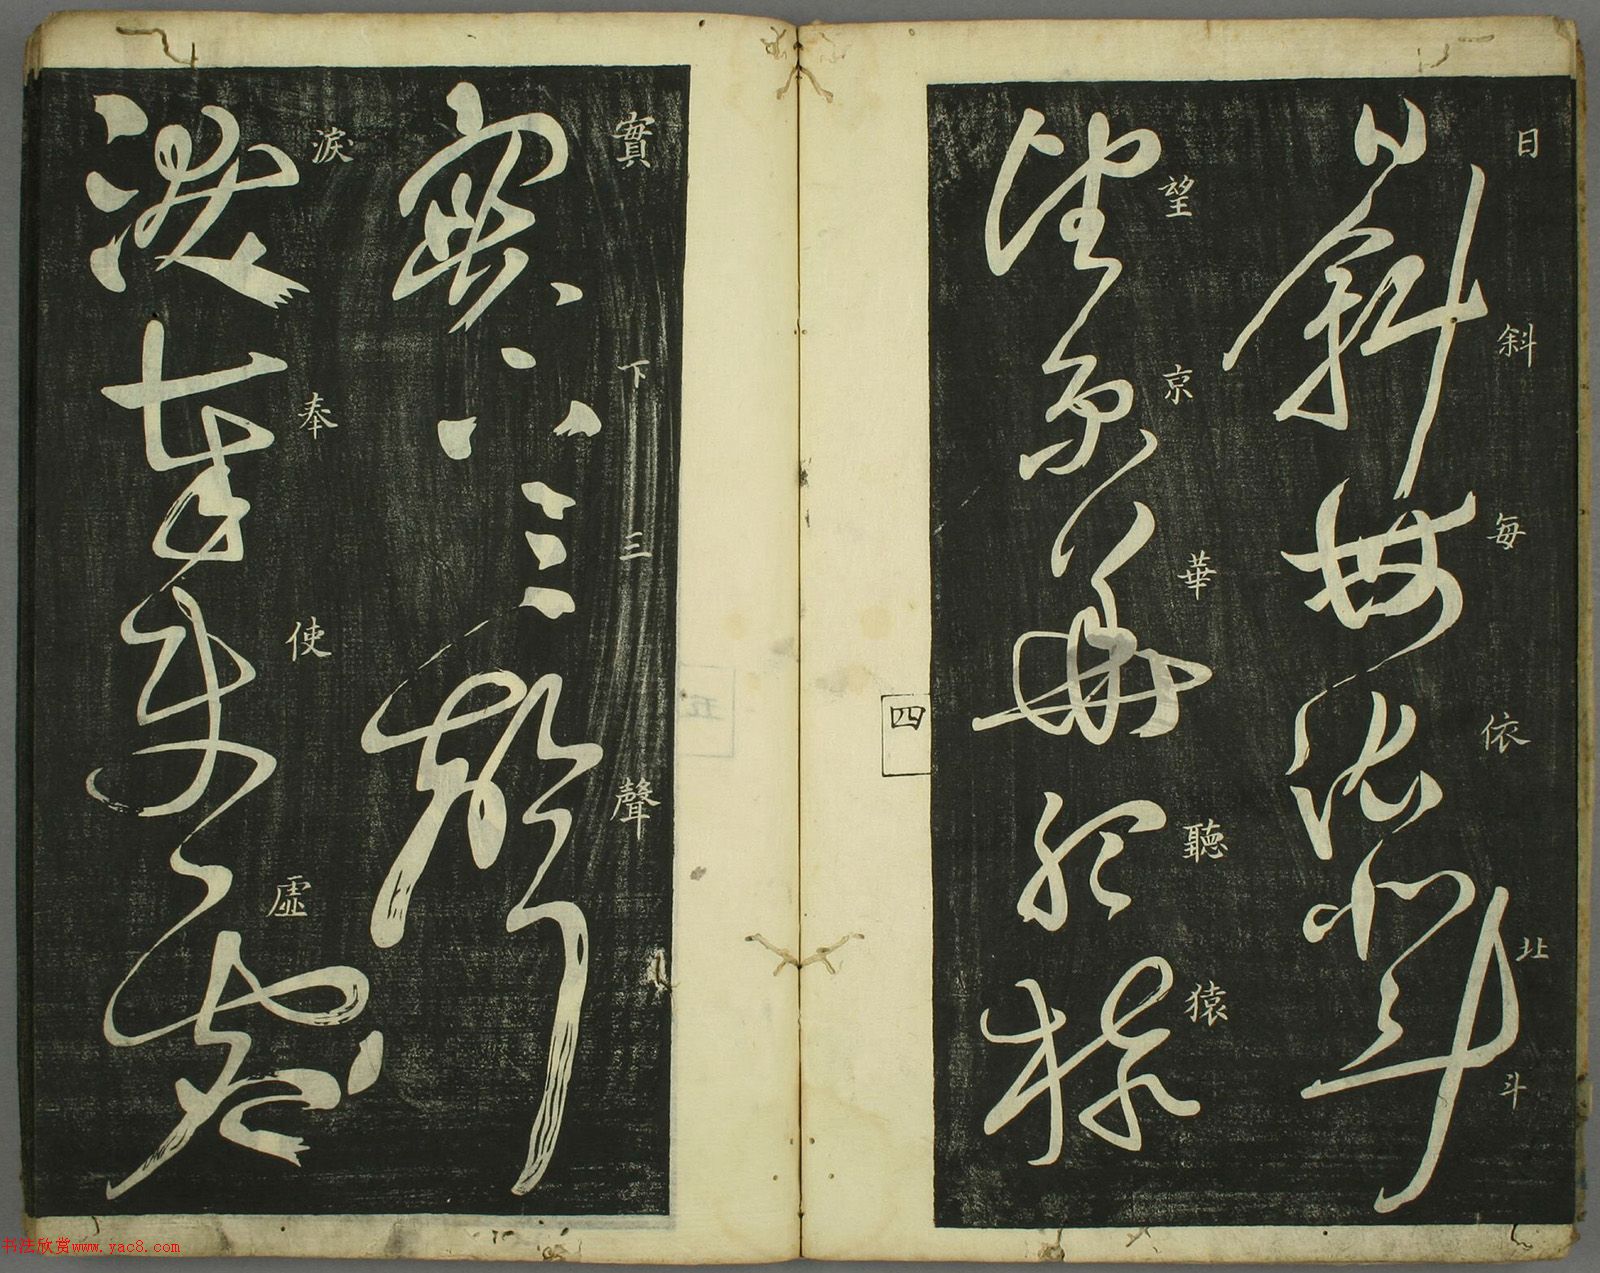 日斜每依北斗
望京華聽猿
四
實下三聲
淚奉使虛
书法欣赏www.yac8.com